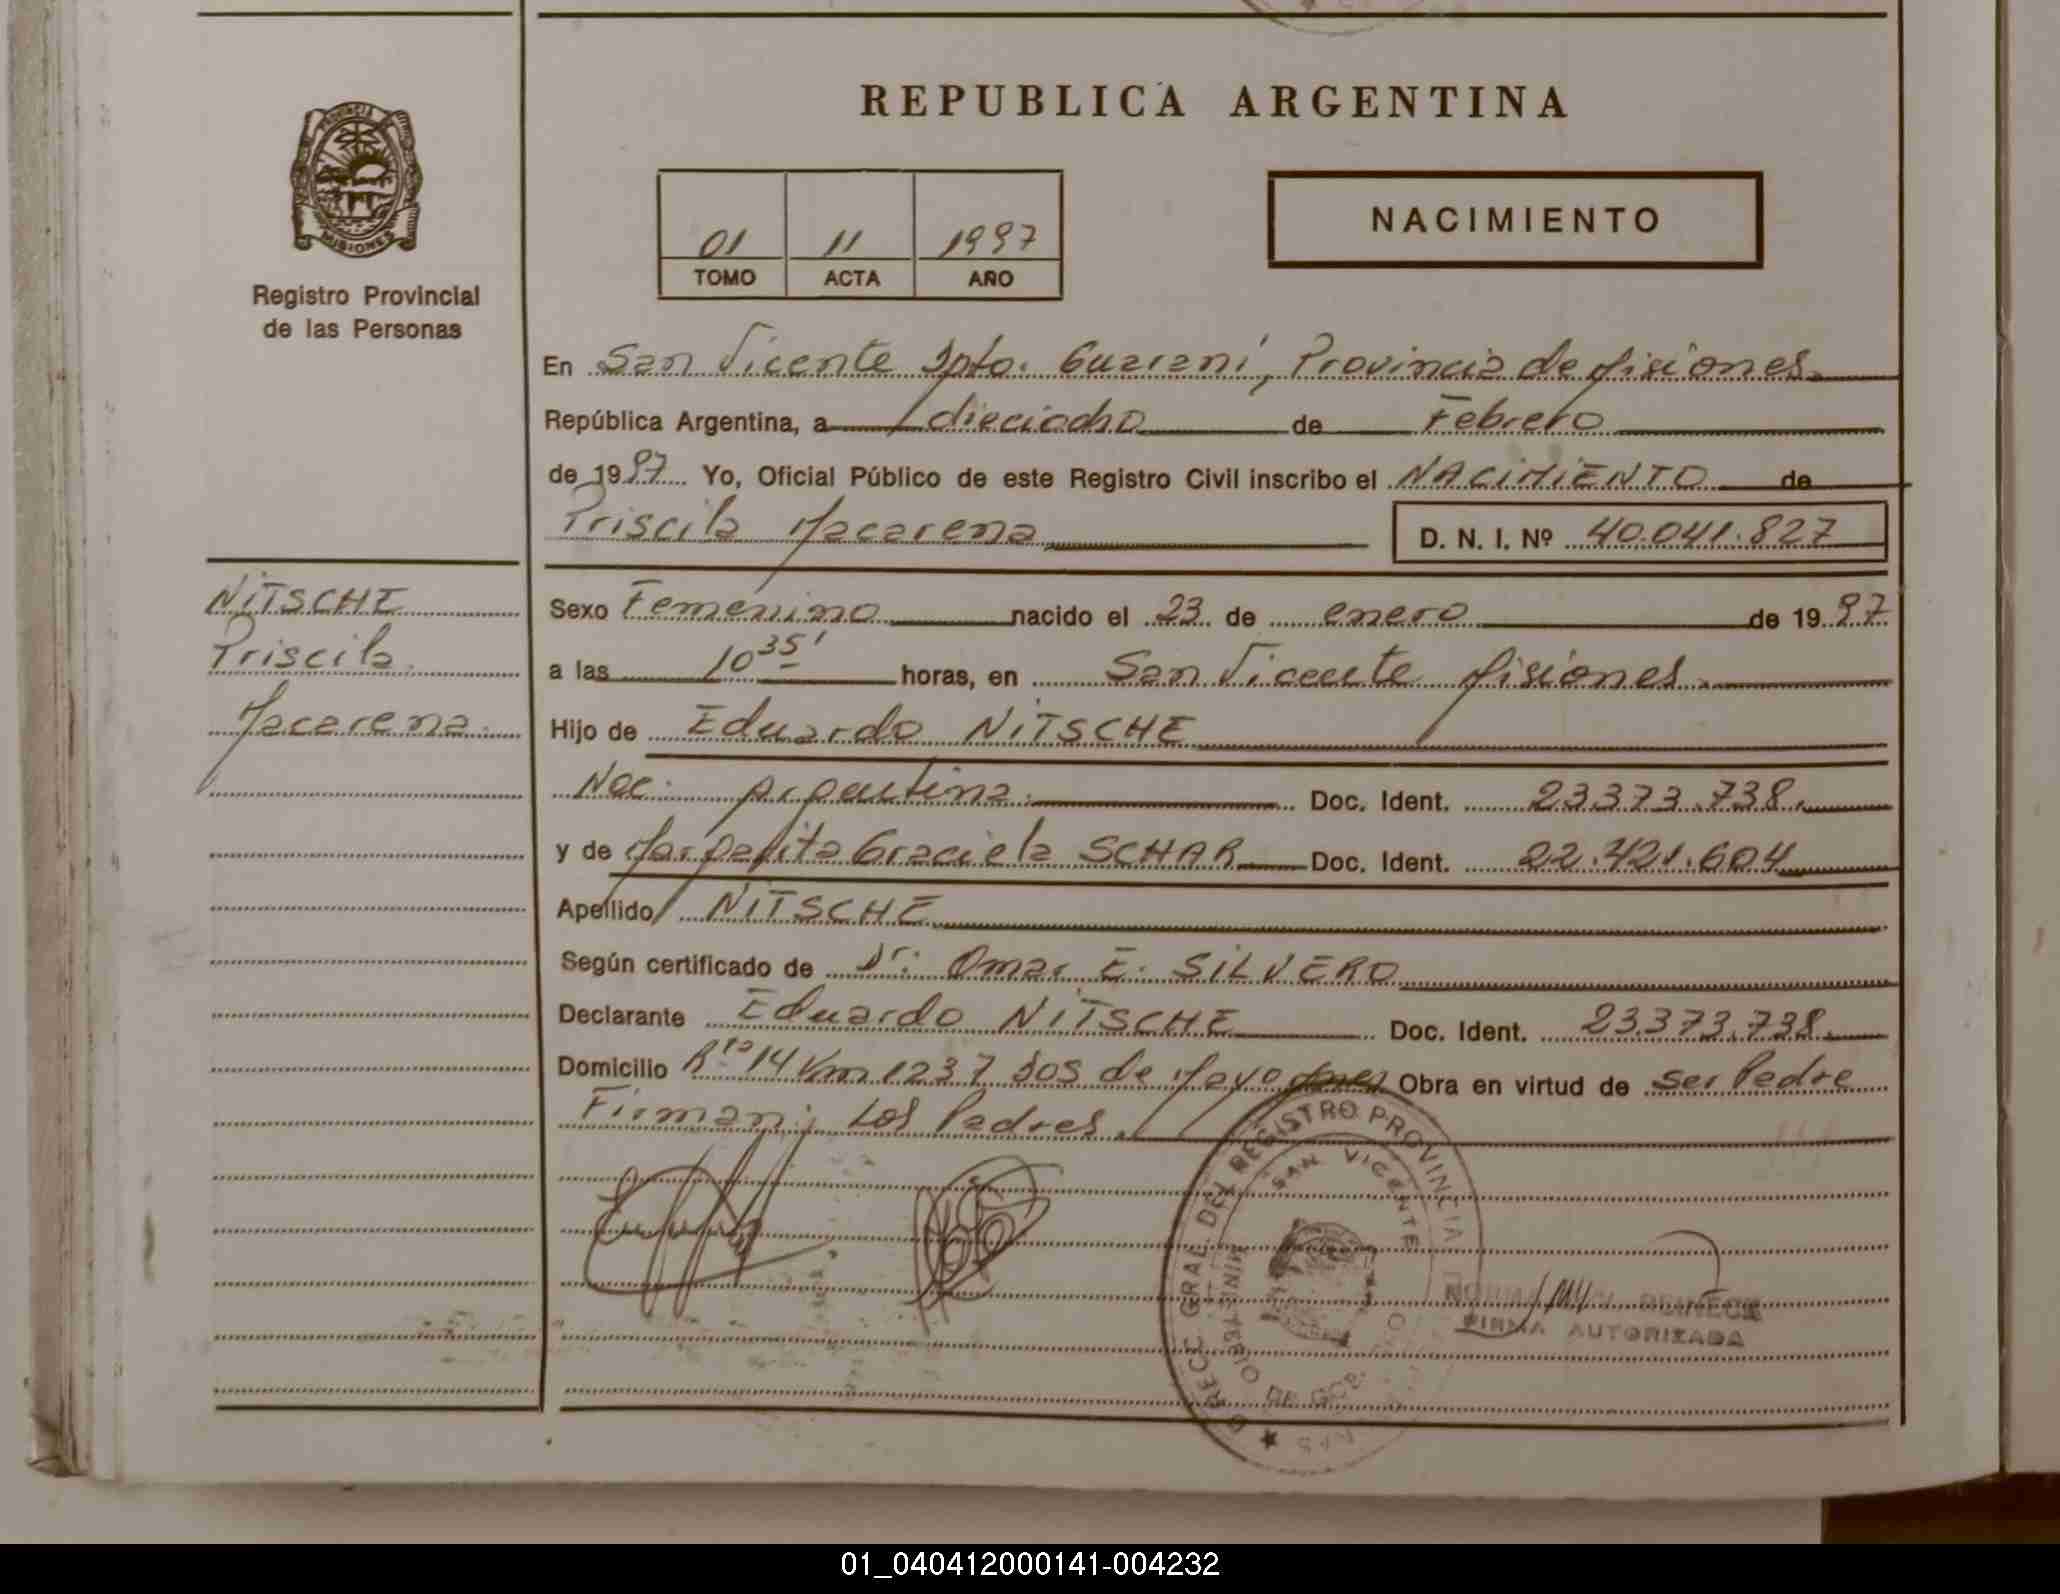 REPUBLICA ARGENTINA
PROVINCIA DE
MISIONES
Registro Provincial
de las Personas
01 11 1997
TOMO ACTA AÑO
NACIMIENTO
En San Vicente Dpto. Guarani, Provincia de Misiones.
República Argentina, a dieciocho de Febrero
de 1997 Yo, Oficial Público de este Registro Civil inscribo el NACIMIENTO de
Priscila Macarena
D. N. I. Nº 40.041.827
NITSCHE
Priscila
Macarena
Sexo Femenino nacido el 23 de enero de 1997
a las 10 35' horas, en San Vicente Misiones
Hijo de Eduardo NITSCHE
Nac. Argentina. Doc. Ident. 23.373.738.
y de Margarita Graciela SCHAR Doc. Ident. 22.421.604
Apellido NITSCHE
Según certificado de Dr. Omar E. SILVERO
Declarante Eduardo NITSCHE Doc. Ident. 23.373.738.
Domicilio Rta 14 Km 1237 Dos de Mayo Obra en virtud de ser Padre
Firman; Los Padres.
DIRECC. GRAL. DEL REGISTRO PROVINCIAL
SAN VICENTE
MINISTERIO DE GOB.
REINECK
FIRMA AUTORIZADA
01_040412000141-004232